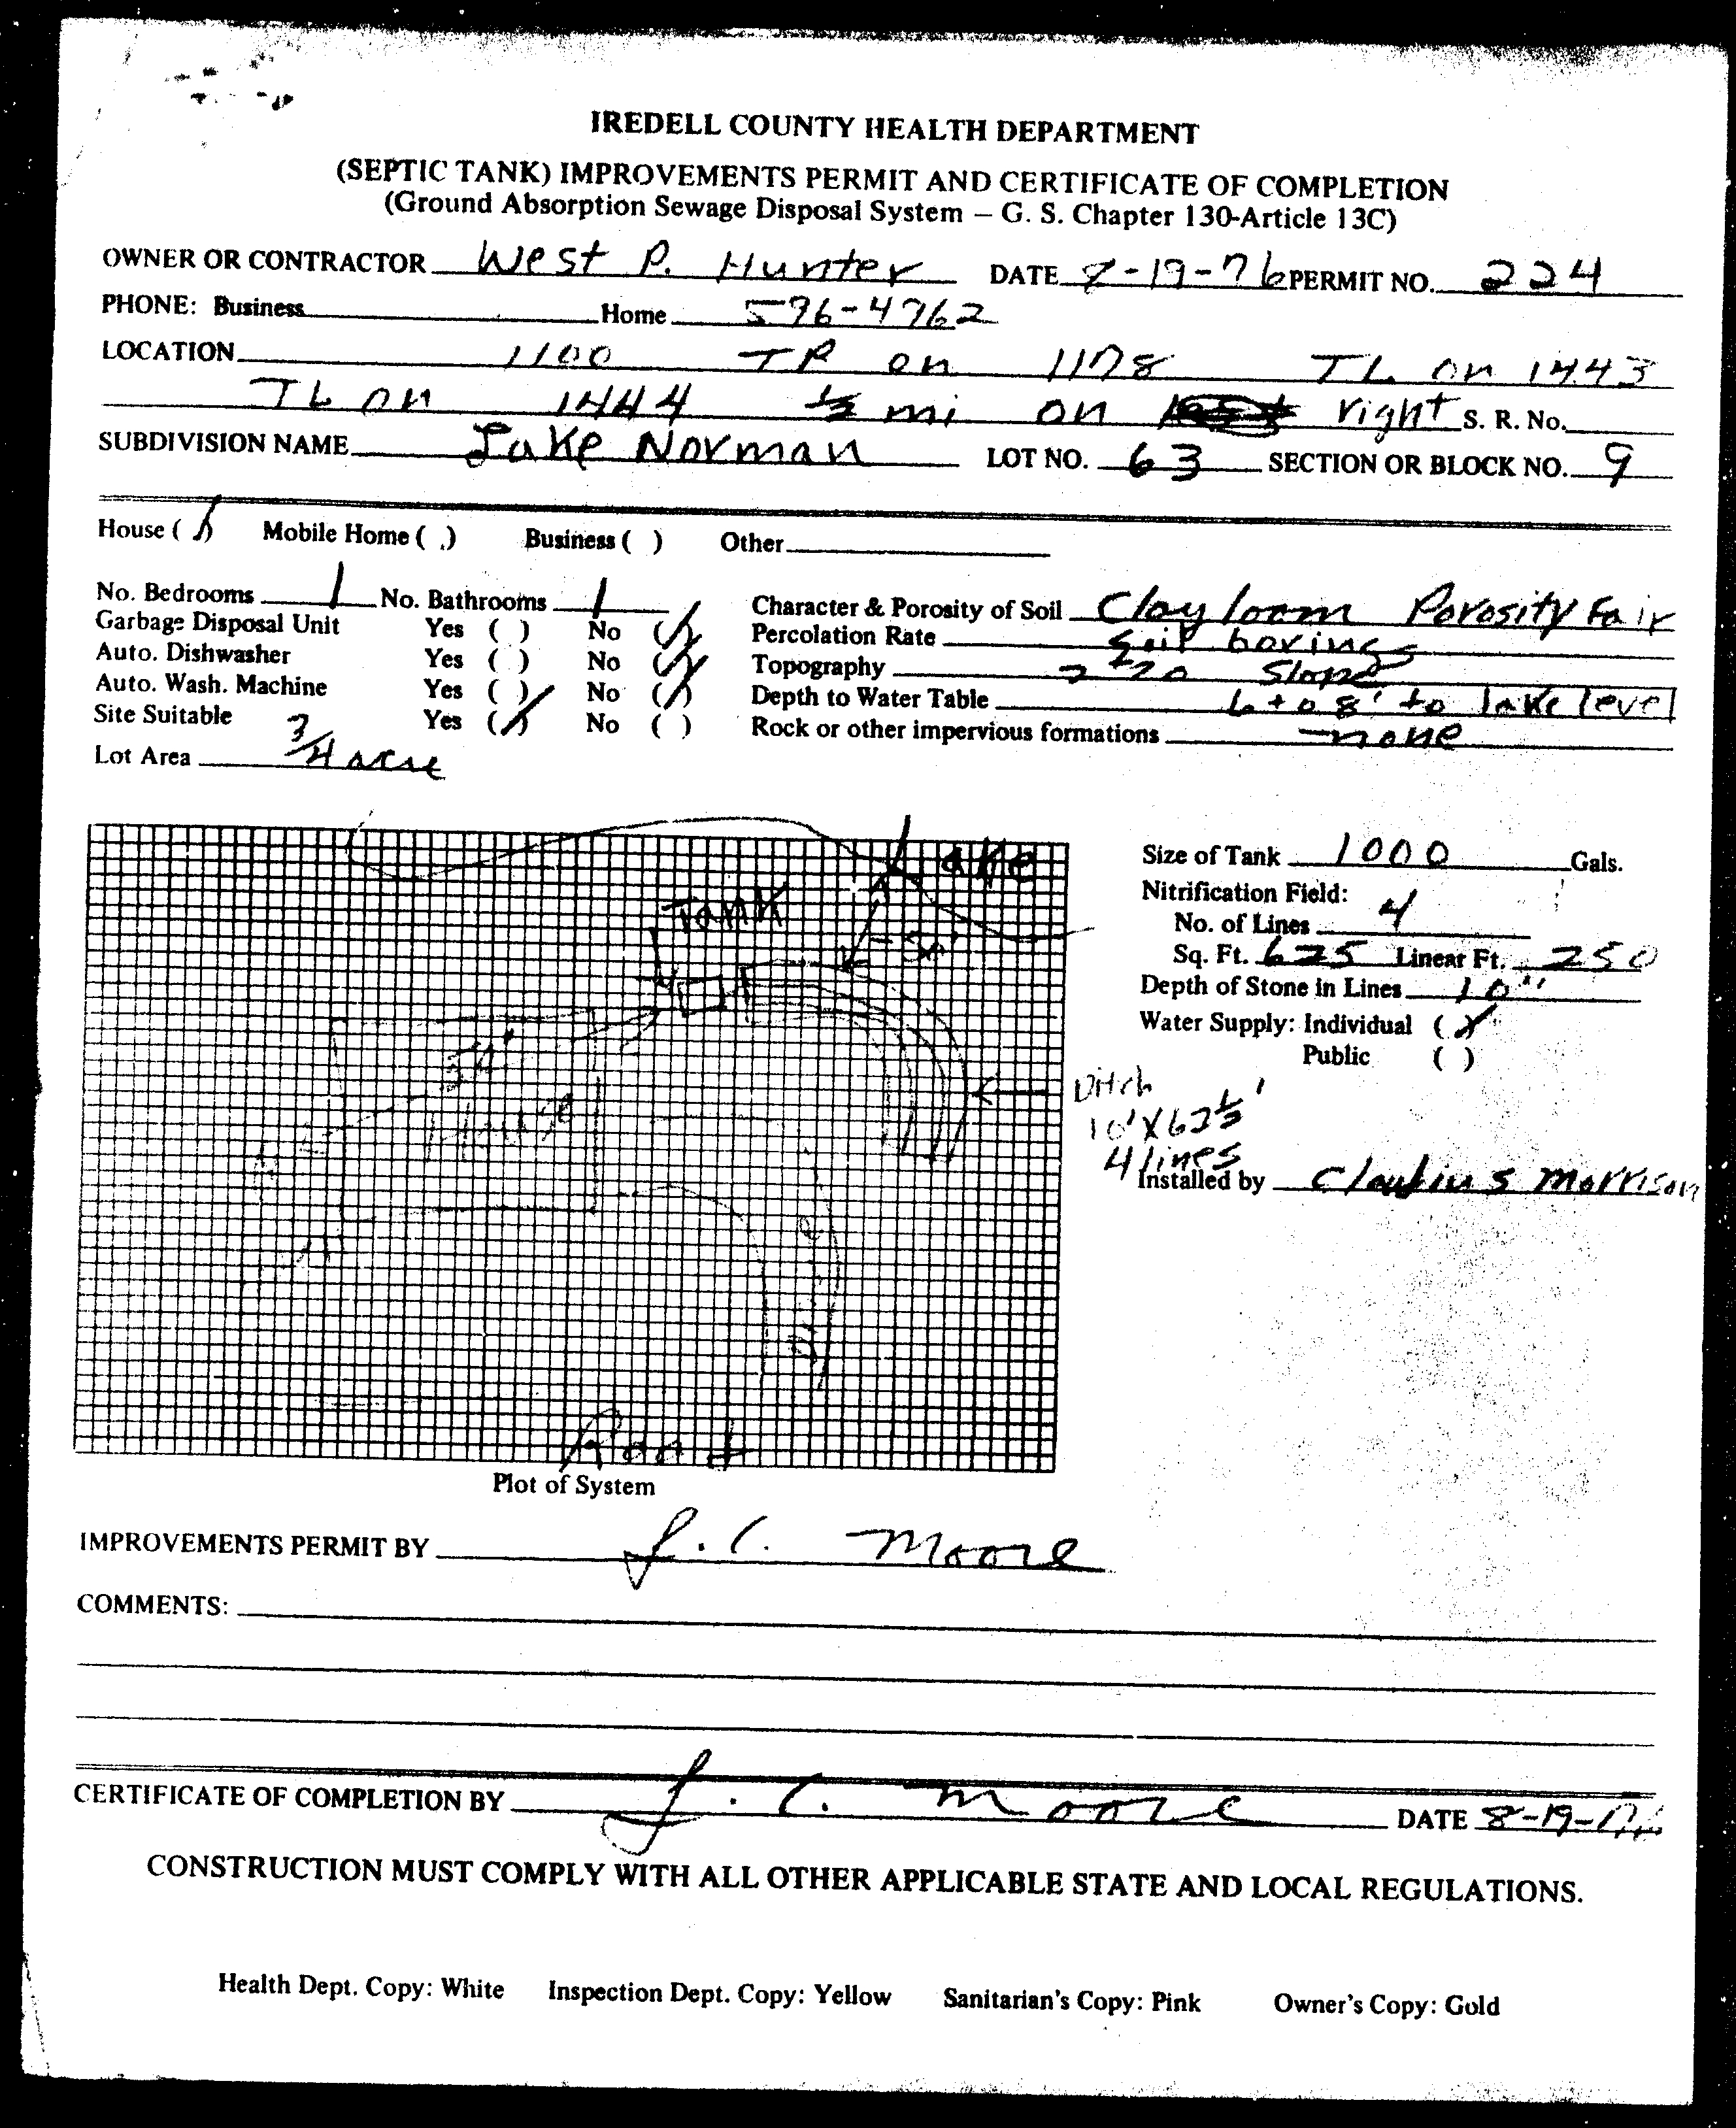 IREDELL COUNTY HEALTH DEPARTMENT
(SEPTIC TANK) IMPROVEMENTS PERMIT AND CERTIFICATE OF COMPLETION
(Ground Absorption Sewage Disposal System – G. S. Chapter 130-Article 13C)
OWNER OR CONTRACTOR West P. Hunter DATE 8-19-76 PERMIT NO. 224
PHONE: Business Home 596-4762
LOCATION 1100 TR on 1178 TL on 1443
TL on 1444 mi on right S. R. No.
SUBDIVISION NAME Lake Norman LOT NO. 63 SECTION OR BLOCK NO. 9
House (/) Mobile Home ( ) Business ( ) Other
No. Bedrooms 1 No. Bathrooms 1 Character & Porosity of Soil Clay loam Porosity Fair
Garbage Disposal Unit Yes ( ) No (/) Percolation Rate soil borings
Auto. Dishwasher Yes ( ) No (/) Topography Slope
Auto. Wash. Machine Yes ( ) No (/) Depth to Water Table 6 to 8' to lake level
Site Suitable Yes (/) No ( ) Rock or other impervious formations none
Lot Area 3/4 acre
Lake
Tank
House
Road
Size of Tank 1000 Gals.
Nitrification Field:
No. of Lines 4
Sq. Ft. 625 Linear Ft. 250
Depth of Stone in Lines 10"
Water Supply: Individual (/)
Public ( )
Ditch
4 lines
Installed by Claudius Morrison
Plot of System
IMPROVEMENTS PERMIT BY J. C. Moore
COMMENTS:
CERTIFICATE OF COMPLETION BY J. C. Moore DATE 8-19-76
CONSTRUCTION MUST COMPLY WITH ALL OTHER APPLICABLE STATE AND LOCAL REGULATIONS.
Health Dept. Copy: White Inspection Dept. Copy: Yellow Sanitarian's Copy: Pink Owner's Copy: Gold